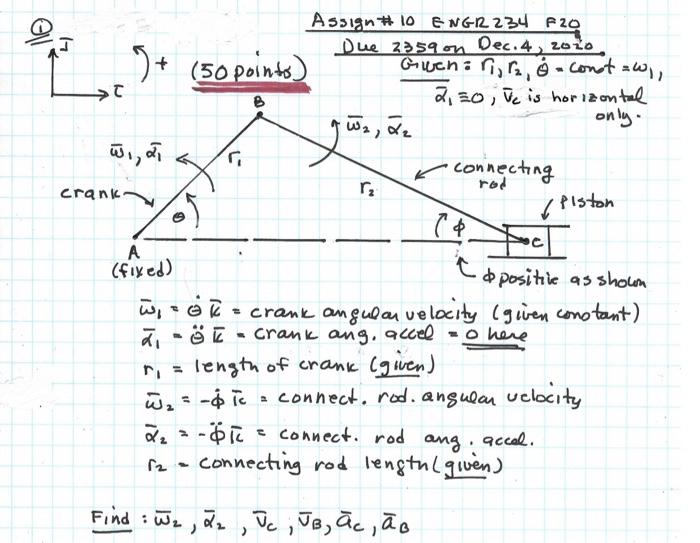 ① Assign# 10 ENGR234 F20
Due 2359 on Dec. 4, 2020
J
+
(50 points)
Given: r₁, r₂, θ̇ = const = ω₁,
ᾱ₁ ≡ 0, v̄c is horizontal
only.
B
ω̄₁, ᾱ₁
r₁
ω̄₂, ᾱ₂
r₂
connecting
rod
crank
θ
Φ
piston
C
A
(fixed)
Φ positive as shown
ω̄₁ = θ̇ k̄ = crank angular velocity (given constant)
ᾱ₁ = θ̈ k̄ = crank ang. accel = 0 here
r₁ = length of crank (given)
ω̄₂ = -Φ̇ k̄ = connect. rod. angular velocity
ᾱ₂ = -Φ̈ k̄ = connect. rod ang. accel.
r₂ = connecting rod length (given)
Find: ω̄₂, ᾱ₂, v̄c, v̄B, āc, āB